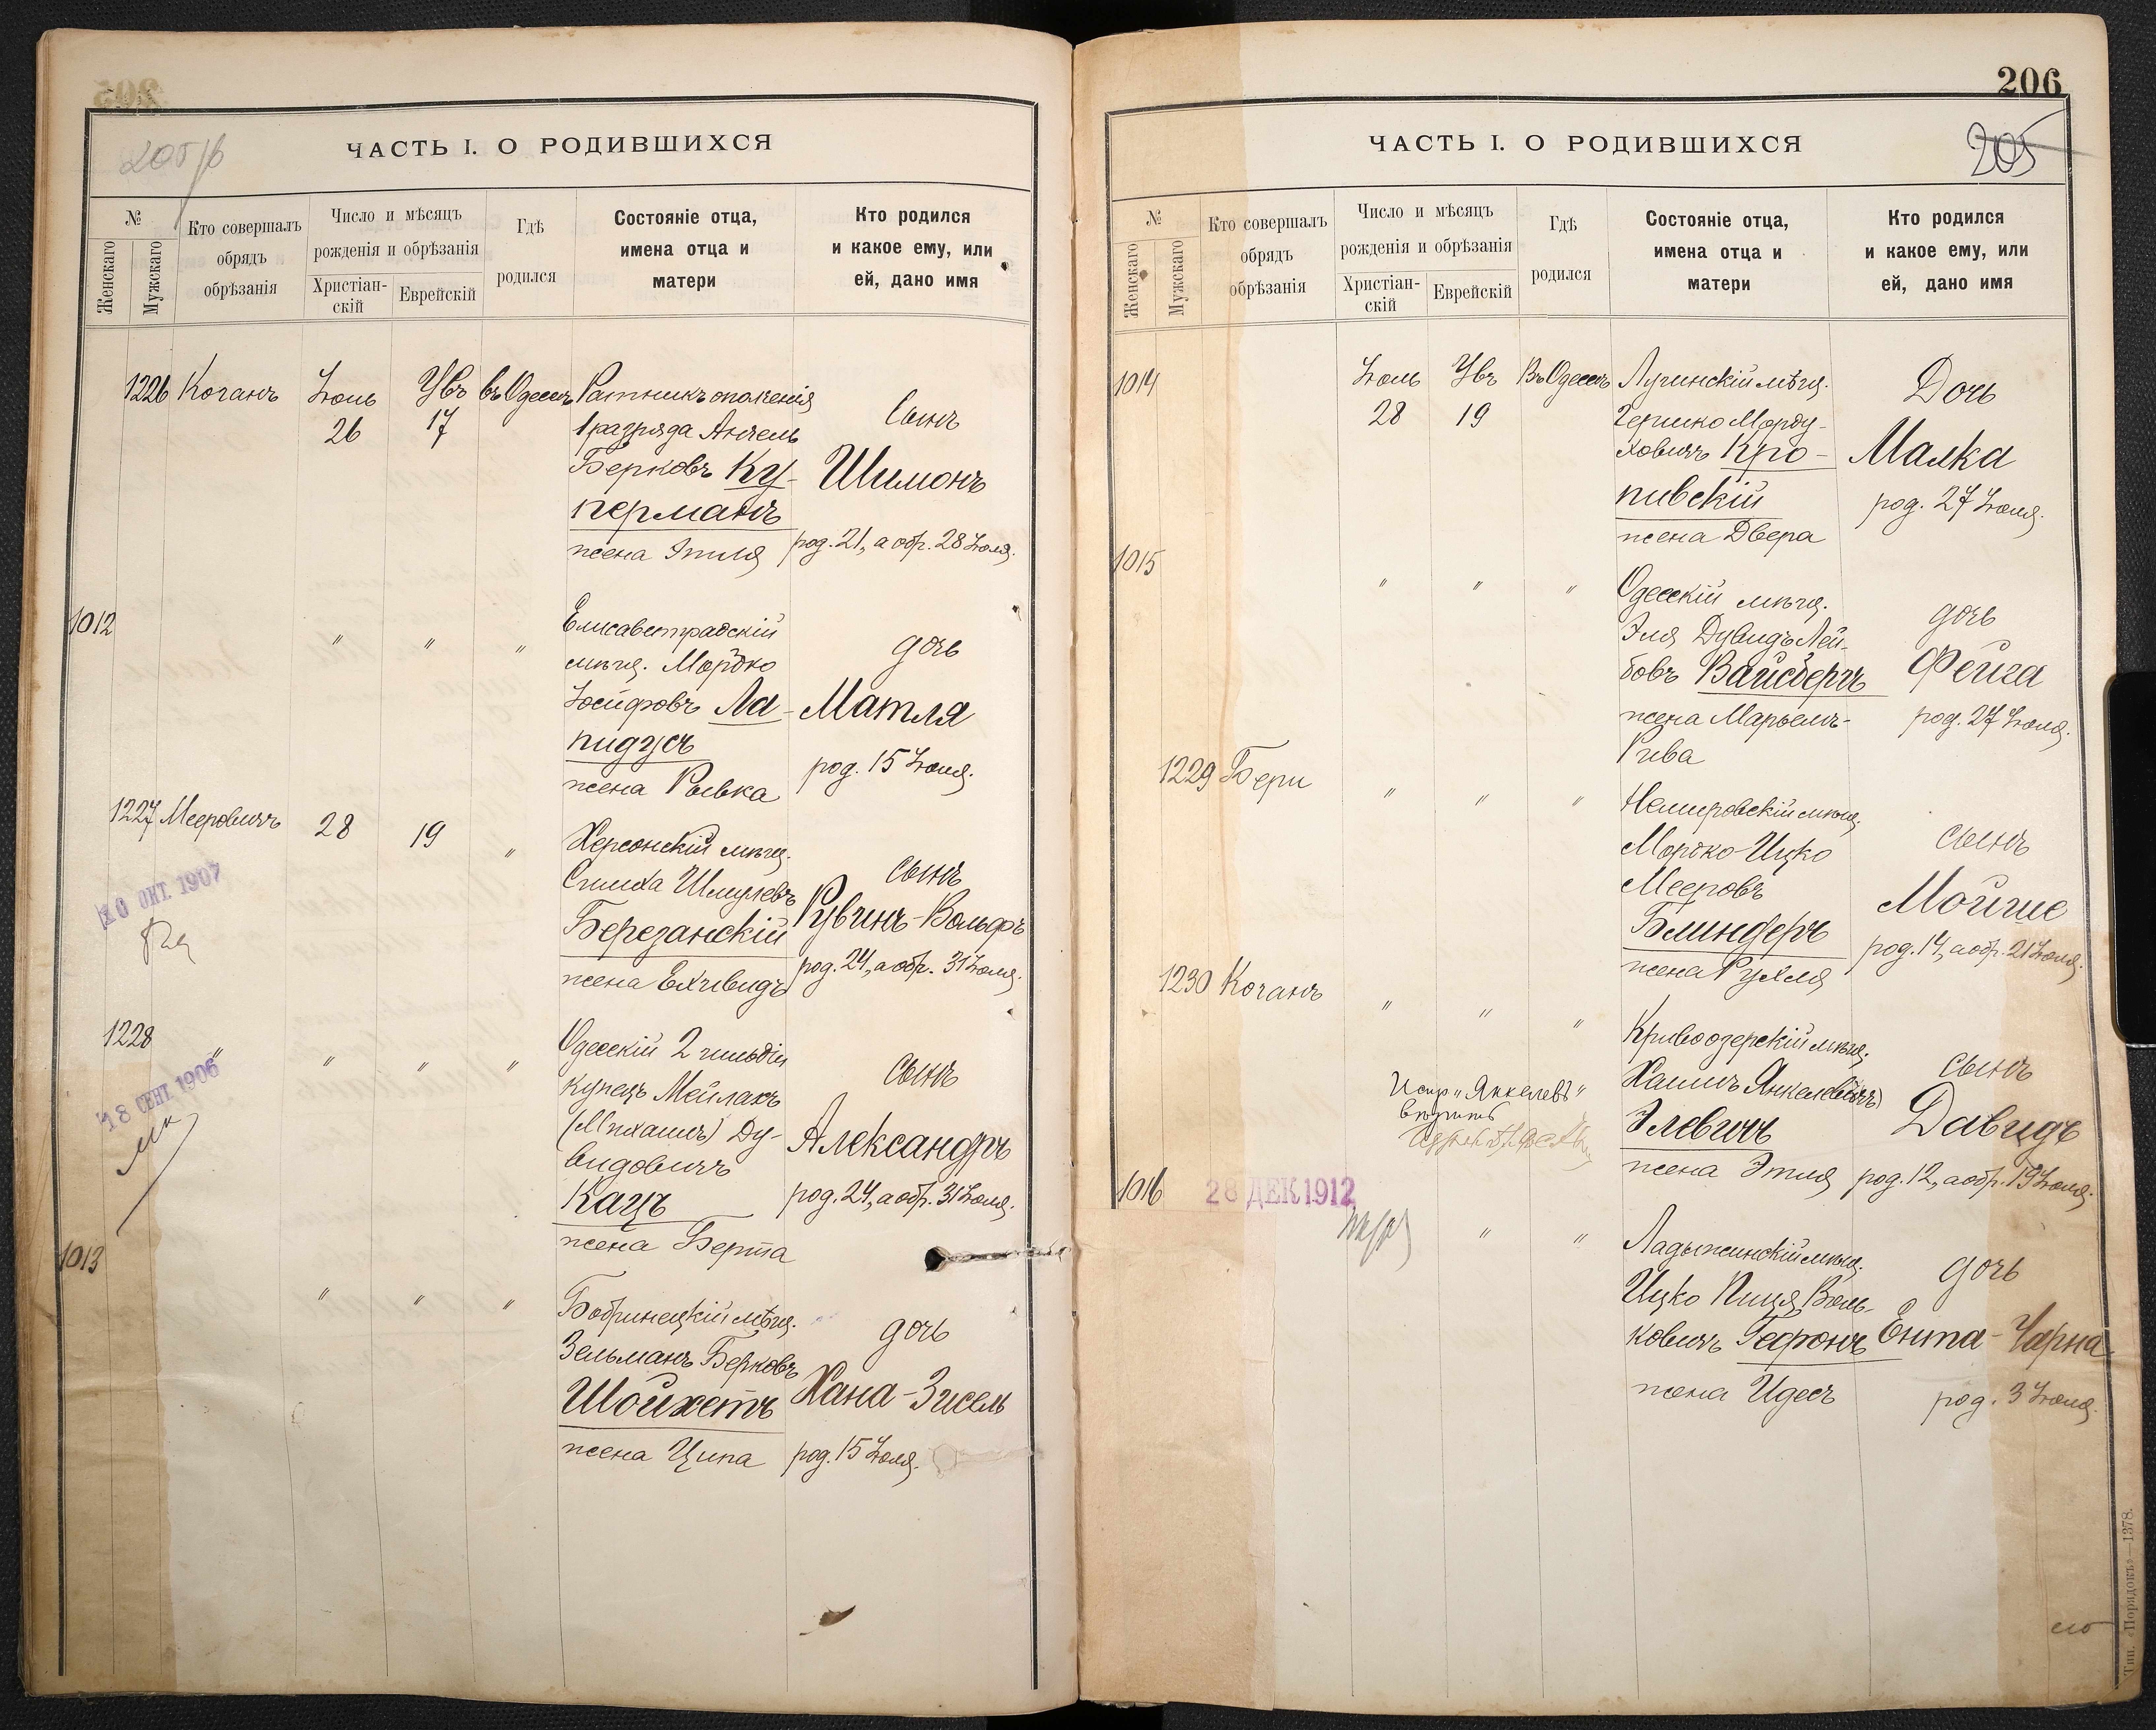 205/б
ЧАСТЬ I. О РОДИВШИХСЯ
№
Женскаго
Мужскаго
Кто совершалъ
обрядъ
обрѣзанія
Число и мѣсяцъ
рожденія и обрѣзанія
Христіан-
скій
Еврейскій
Гдѣ
родился
Состояніе отца,
имена отца и
матери
Кто родился
и какое ему, или
ей, дано имя
1226 Коганъ
Іюль
26
Увъ
17
въ Одессѣ
Ратникъ ополченія
1 разряда Анчель
Берковъ Ку-
перманъ
жена Этля
Сынъ
Шимонъ
род. 21, а обр. 28 Іюля.
1012
" " "
Елисаветградскій
мѣщ. Мордко
Іосифовъ Ла-
пидусъ
жена Рывка
дочь
Матля
род. 15 Іюля.
1227 Мееровичъ
28
19
"
10 ОКТ. 1907
Херсонскій мѣщ.
Симха Шмулевъ
Березанскій
жена Ехивидъ
сынъ
Рувинъ-Вольфъ
род. 24, а обр. 31 Іюля.
1228 "
" " "
18 СЕНТ. 1906
Одесскій 2 гильдіи
купецъ Мейлахъ
(Михаилъ) Ду-
видовичъ
Кацъ
жена Берта
сынъ
Александръ
род. 24, а обр. 31 Іюля.
1013
" " "
Бобринецкій мѣщ.
Зельманъ Берковъ
Шойхетъ
жена Ципа
дочь
Хана-Зисель
род. 15 Іюля.
206
205
ЧАСТЬ I. О РОДИВШИХСЯ
№
Женскаго
Мужскаго
Кто совершалъ
обрядъ
обрѣзанія
Число и мѣсяцъ
рожденія и обрѣзанія
Христіан-
скій
Еврейскій
Гдѣ
родился
Состояніе отца,
имена отца и
матери
Кто родился
и какое ему, или
ей, дано имя
1014
Іюль
28
Увъ
19
Въ Одессѣ
Лугинскій мѣщ.
Гершко Морду-
ховичъ Кро-
пивскій
жена Двера
Дочь
Малка
род. 27 Іюля.
1015
" " "
Одесскій мѣщ.
Эля Дувидъ Лей-
бовъ Вайсбергъ
жена Марьемъ-
Рива
дочь
Фейга
род. 27 Іюля.
1229 Бери
" " "
Немировскій мѣщ.
Мордко-Ицко
Мееровъ
Блиндеръ
жена Рухля
сынъ
Мойше
род. 14, а обр. 21 Іюля.
1230 Коганъ
" " "
Кривоозерскій мѣщ.
Хаимъ Янкелев(ичъ)
Элевичъ
жена Этля
сынъ
Давидъ
род. 12, а обр. 19 Іюля.
Испр. „Янкелевъ"
вѣрить
1016
28 ДЕК 1912
" "
Ладыжинскій мѣщ.
Ицко Пиця Воль-
ковичъ Гефонъ
жена Идесъ
дочь
Ента-Чарна
род. 3 Іюля.
Тип. «Порядокъ»—1378.